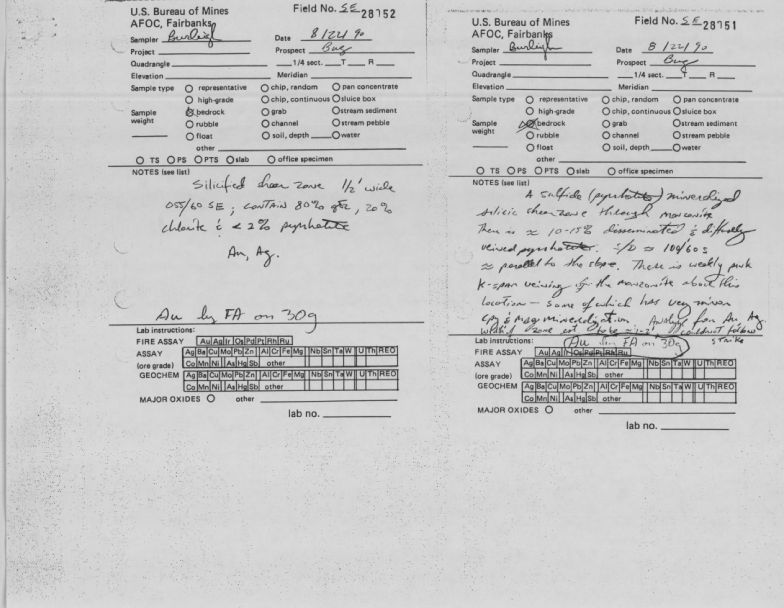 U.S. Bureau of Mines
AFOC, Fairbanks
Field No. SE 28752
Sampler Burleigh
Date 8/22/90
Project
Prospect Bug
Quadrangle 1/4 sect. T R
Elevation Meridian
Sample type representative chip, random pan concentrate
high-grade chip, continuous sluice box
Sample weight bedrock grab stream sediment
rubble channel stream pebble
float soil, depth water
other
TS PS PTS slab office specimen
NOTES (see list)
Silicified shear zone 1/2' wide
055/60 SE; contain 80% qtz, 20%
chlorite & < 2% pyrrhotite
Au, Ag.
Au by FA on 30g
Lab instructions:
FIRE ASSAY Au Ag Ir Os Pd Pt Rh Ru
ASSAY Ag Ba Cu Mo Pb Zn Al Cr Fe Mg Nb Sn Ta W U Th REO
(ore grade) Co Mn Ni As Hg Sb other
GEOCHEM Ag Ba Cu Mo Pb Zn Al Cr Fe Mg Nb Sn Ta W U Th REO
Co Mn Ni As Hg Sb other
MAJOR OXIDES other
lab no.
U.S. Bureau of Mines
AFOC, Fairbanks
Field No. SE 28751
Sampler Burleigh
Date 8/22/90
Project
Prospect Bug
Quadrangle 1/4 sect. T R
Elevation Meridian
Sample type representative chip, random pan concentrate
high-grade chip, continuous sluice box
Sample weight bedrock grab stream sediment
rubble channel stream pebble
float soil, depth water
other
TS PS PTS slab office specimen
NOTES (see list)
A sulfide (pyrrhotite) mineralized
silicic shear zone through monzonite
There is ≈ 10-15% disseminated & diffusely
veined pyrrhotite. S/D ≈ 100/60 S
≈ parallel to the slope. There is weakly pink
K-spar veining of the monzonite about this
location - some of which has very minor
cpy & mag mineralization Analy for Au, Ag
zone couldn't follow
strike
Au FA on 30g
Lab instructions:
FIRE ASSAY Au Ag Ir Os Pd Pt Rh Ru
ASSAY Ag Ba Cu Mo Pb Zn Al Cr Fe Mg Nb Sn Ta W U Th REO
(ore grade) Co Mn Ni As Hg Sb other
GEOCHEM Ag Ba Cu Mo Pb Zn Al Cr Fe Mg Nb Sn Ta W U Th REO
Co Mn Ni As Hg Sb other
MAJOR OXIDES other
lab no.